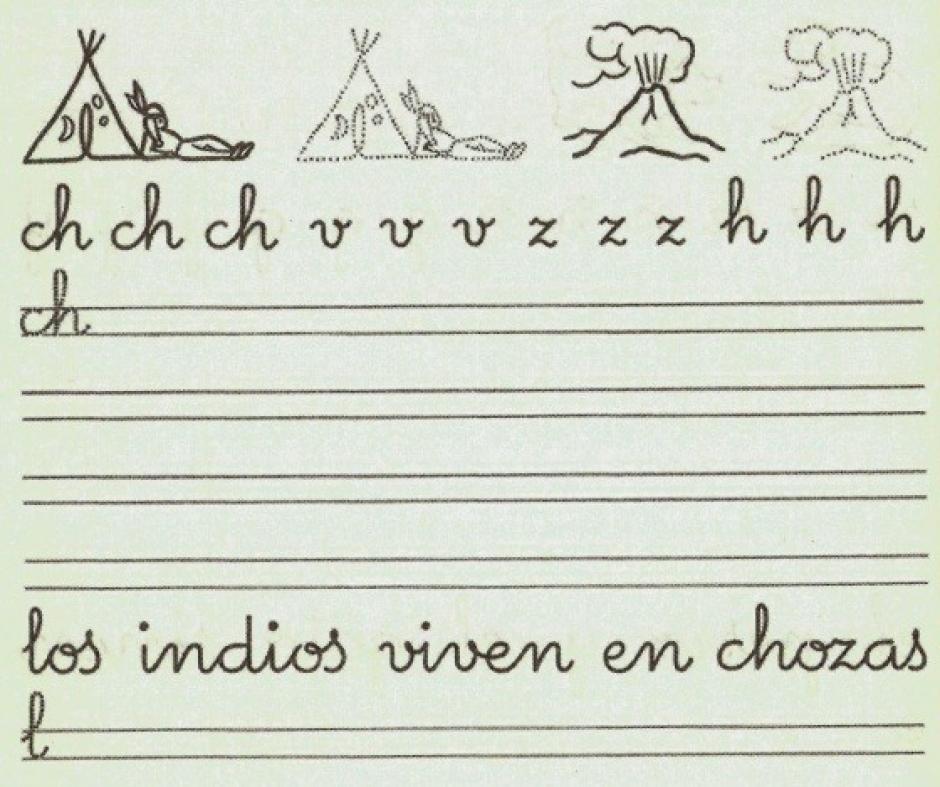 ch ch ch v v v z z z h h h
ch
los indios viven en chozas
l